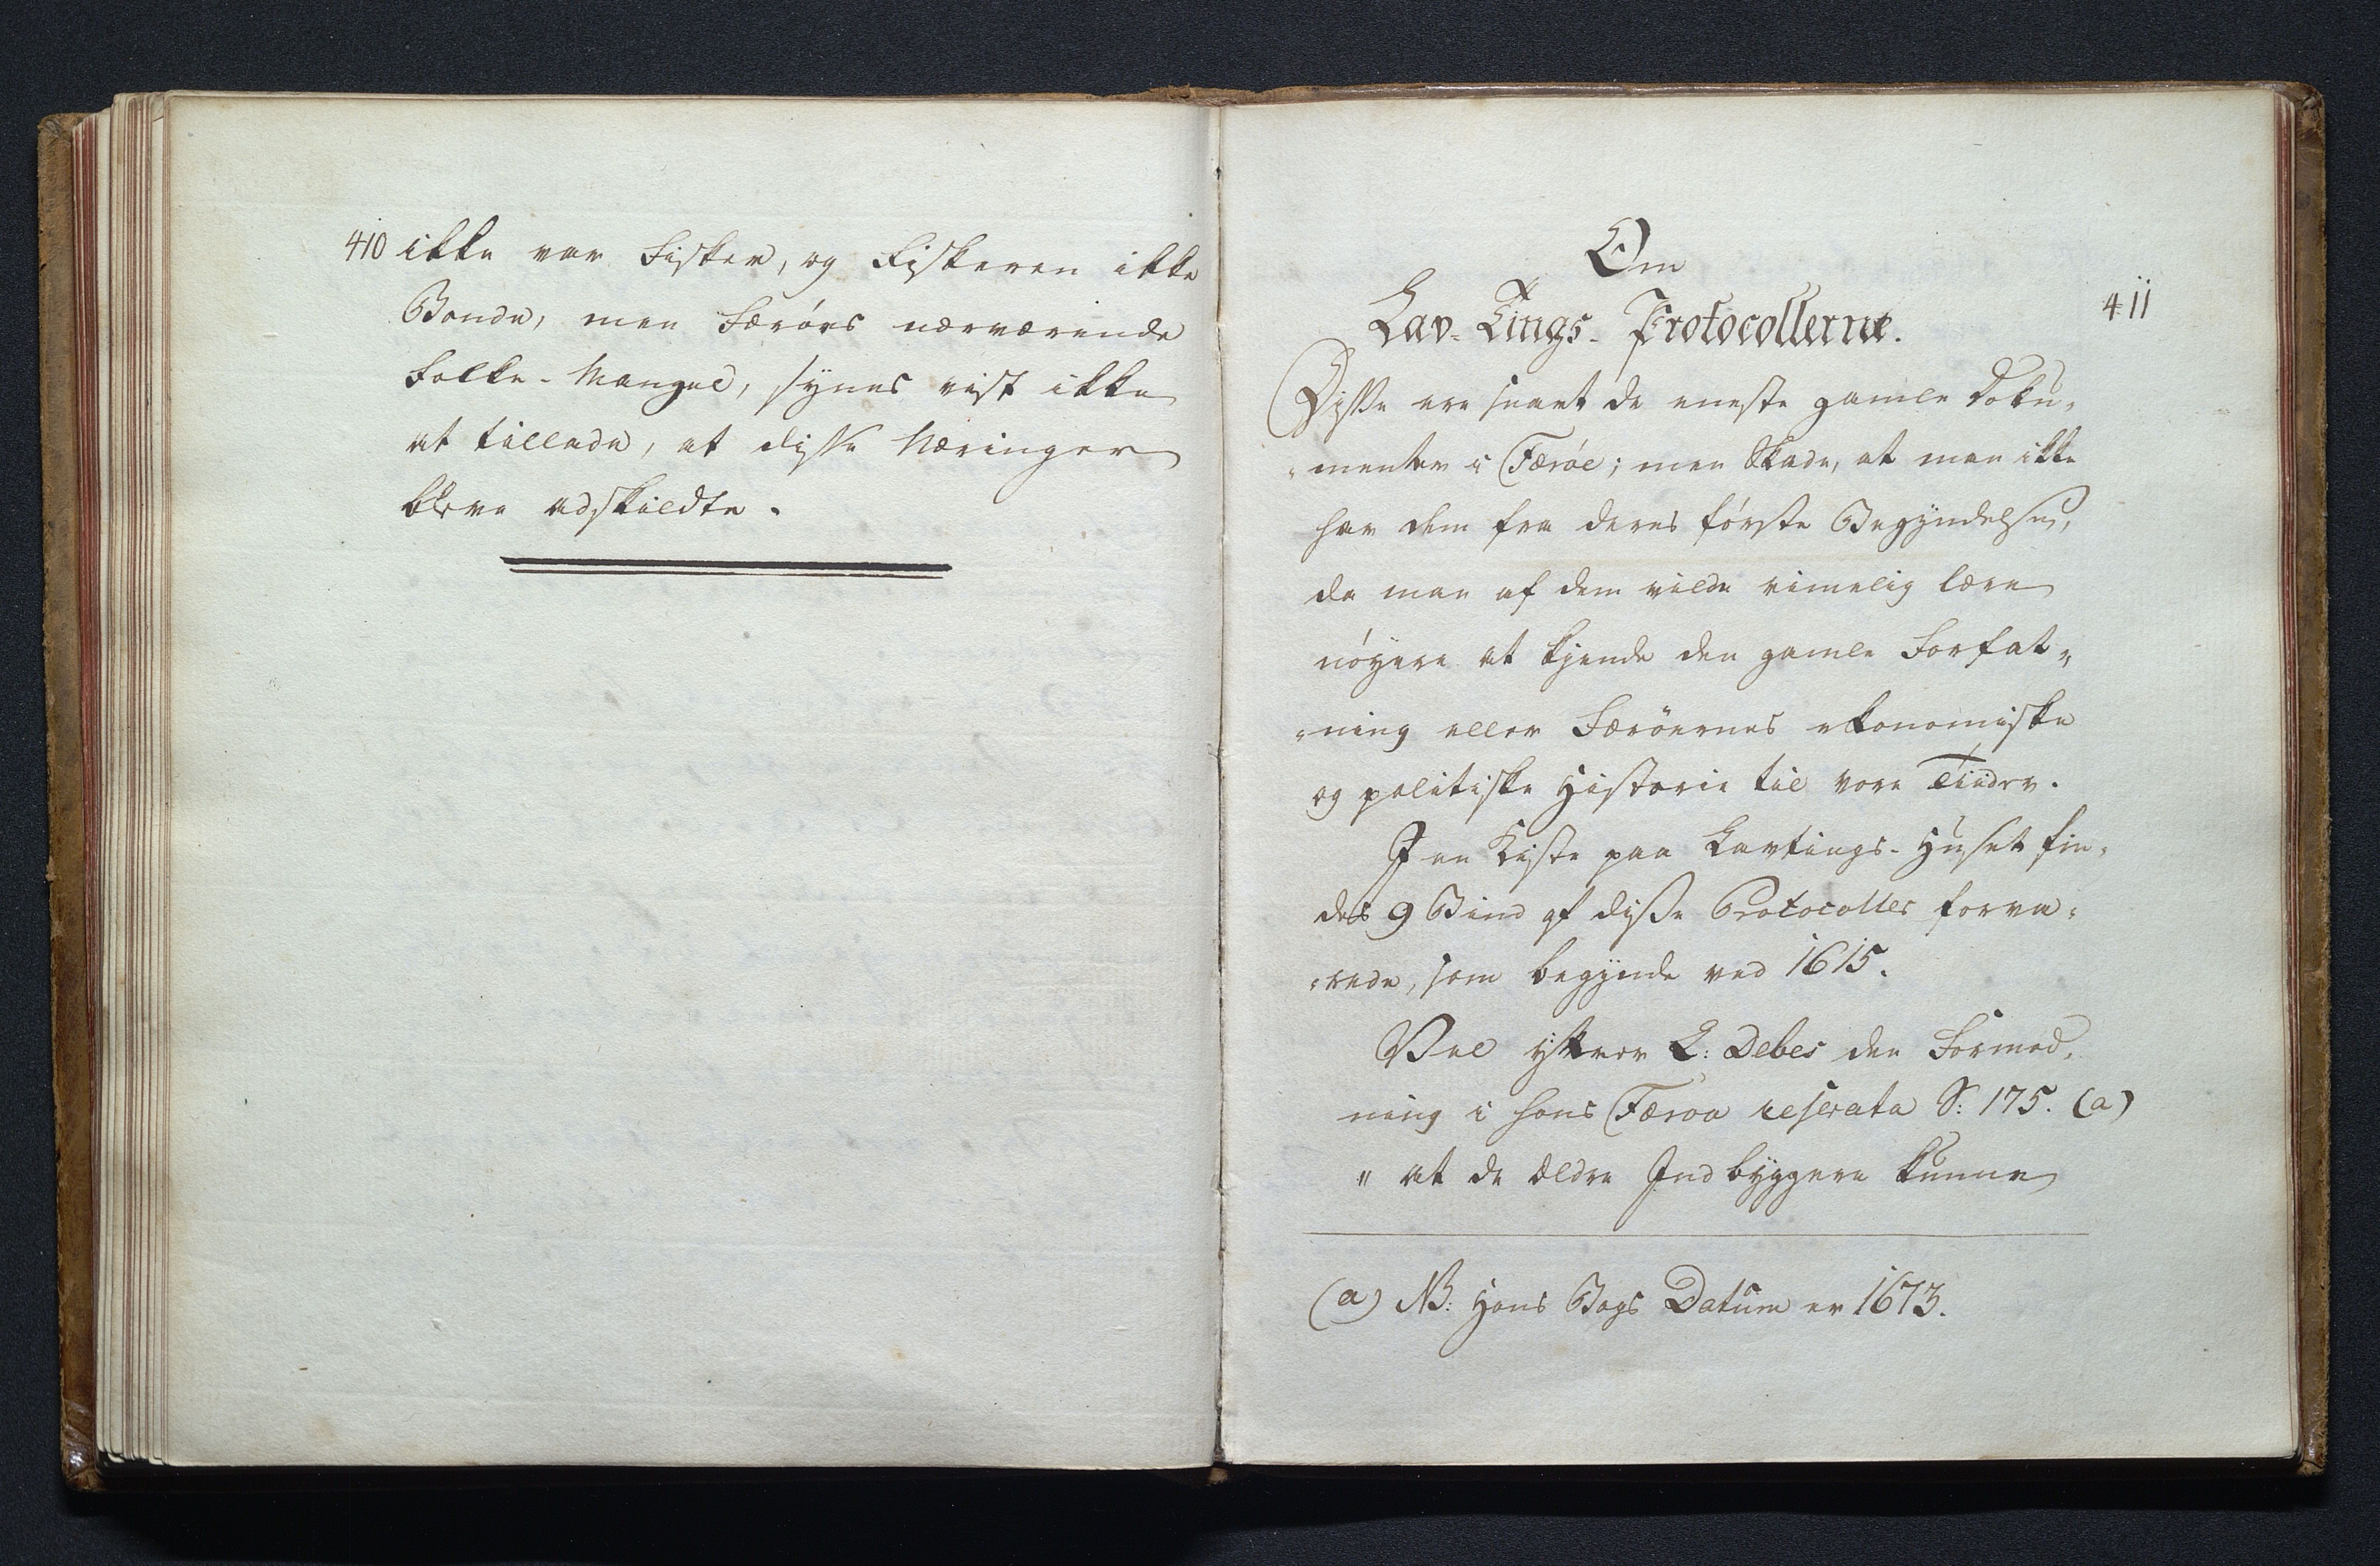 410 ikke var Fisker, og Fiskeren ikke
Bonde, men Færöes nærværende
Folke-Mangel, synes vist ikke
at tillade, at disse Næringer
bleve adskildte.
Om
411
Lav-Tings-Protocollerne.
Disse ere snart de eneste gamle Doku-
-menter i Færöe; men Skade, at man ikke
har dem fra deres förste Begyndelse,
da man af dem vilde rimelig lære
nöyere at kjende den gamle Forfat-
-ning eller Færöernes ekonomiske
og politiske Historie til vore Tiider.
I en Kiste paa Lavtings-Huset fin-
des 9 Bind af disse Protocoller forva-
-rede, som begynde ved 1615.
Vel yttrer L: Debes den Formod-
ning i hans Færoa reserata S: 175. (a)
" at de ældre Indbyggere kunne
(a) NB: Hans Bogs Datum er 1673.